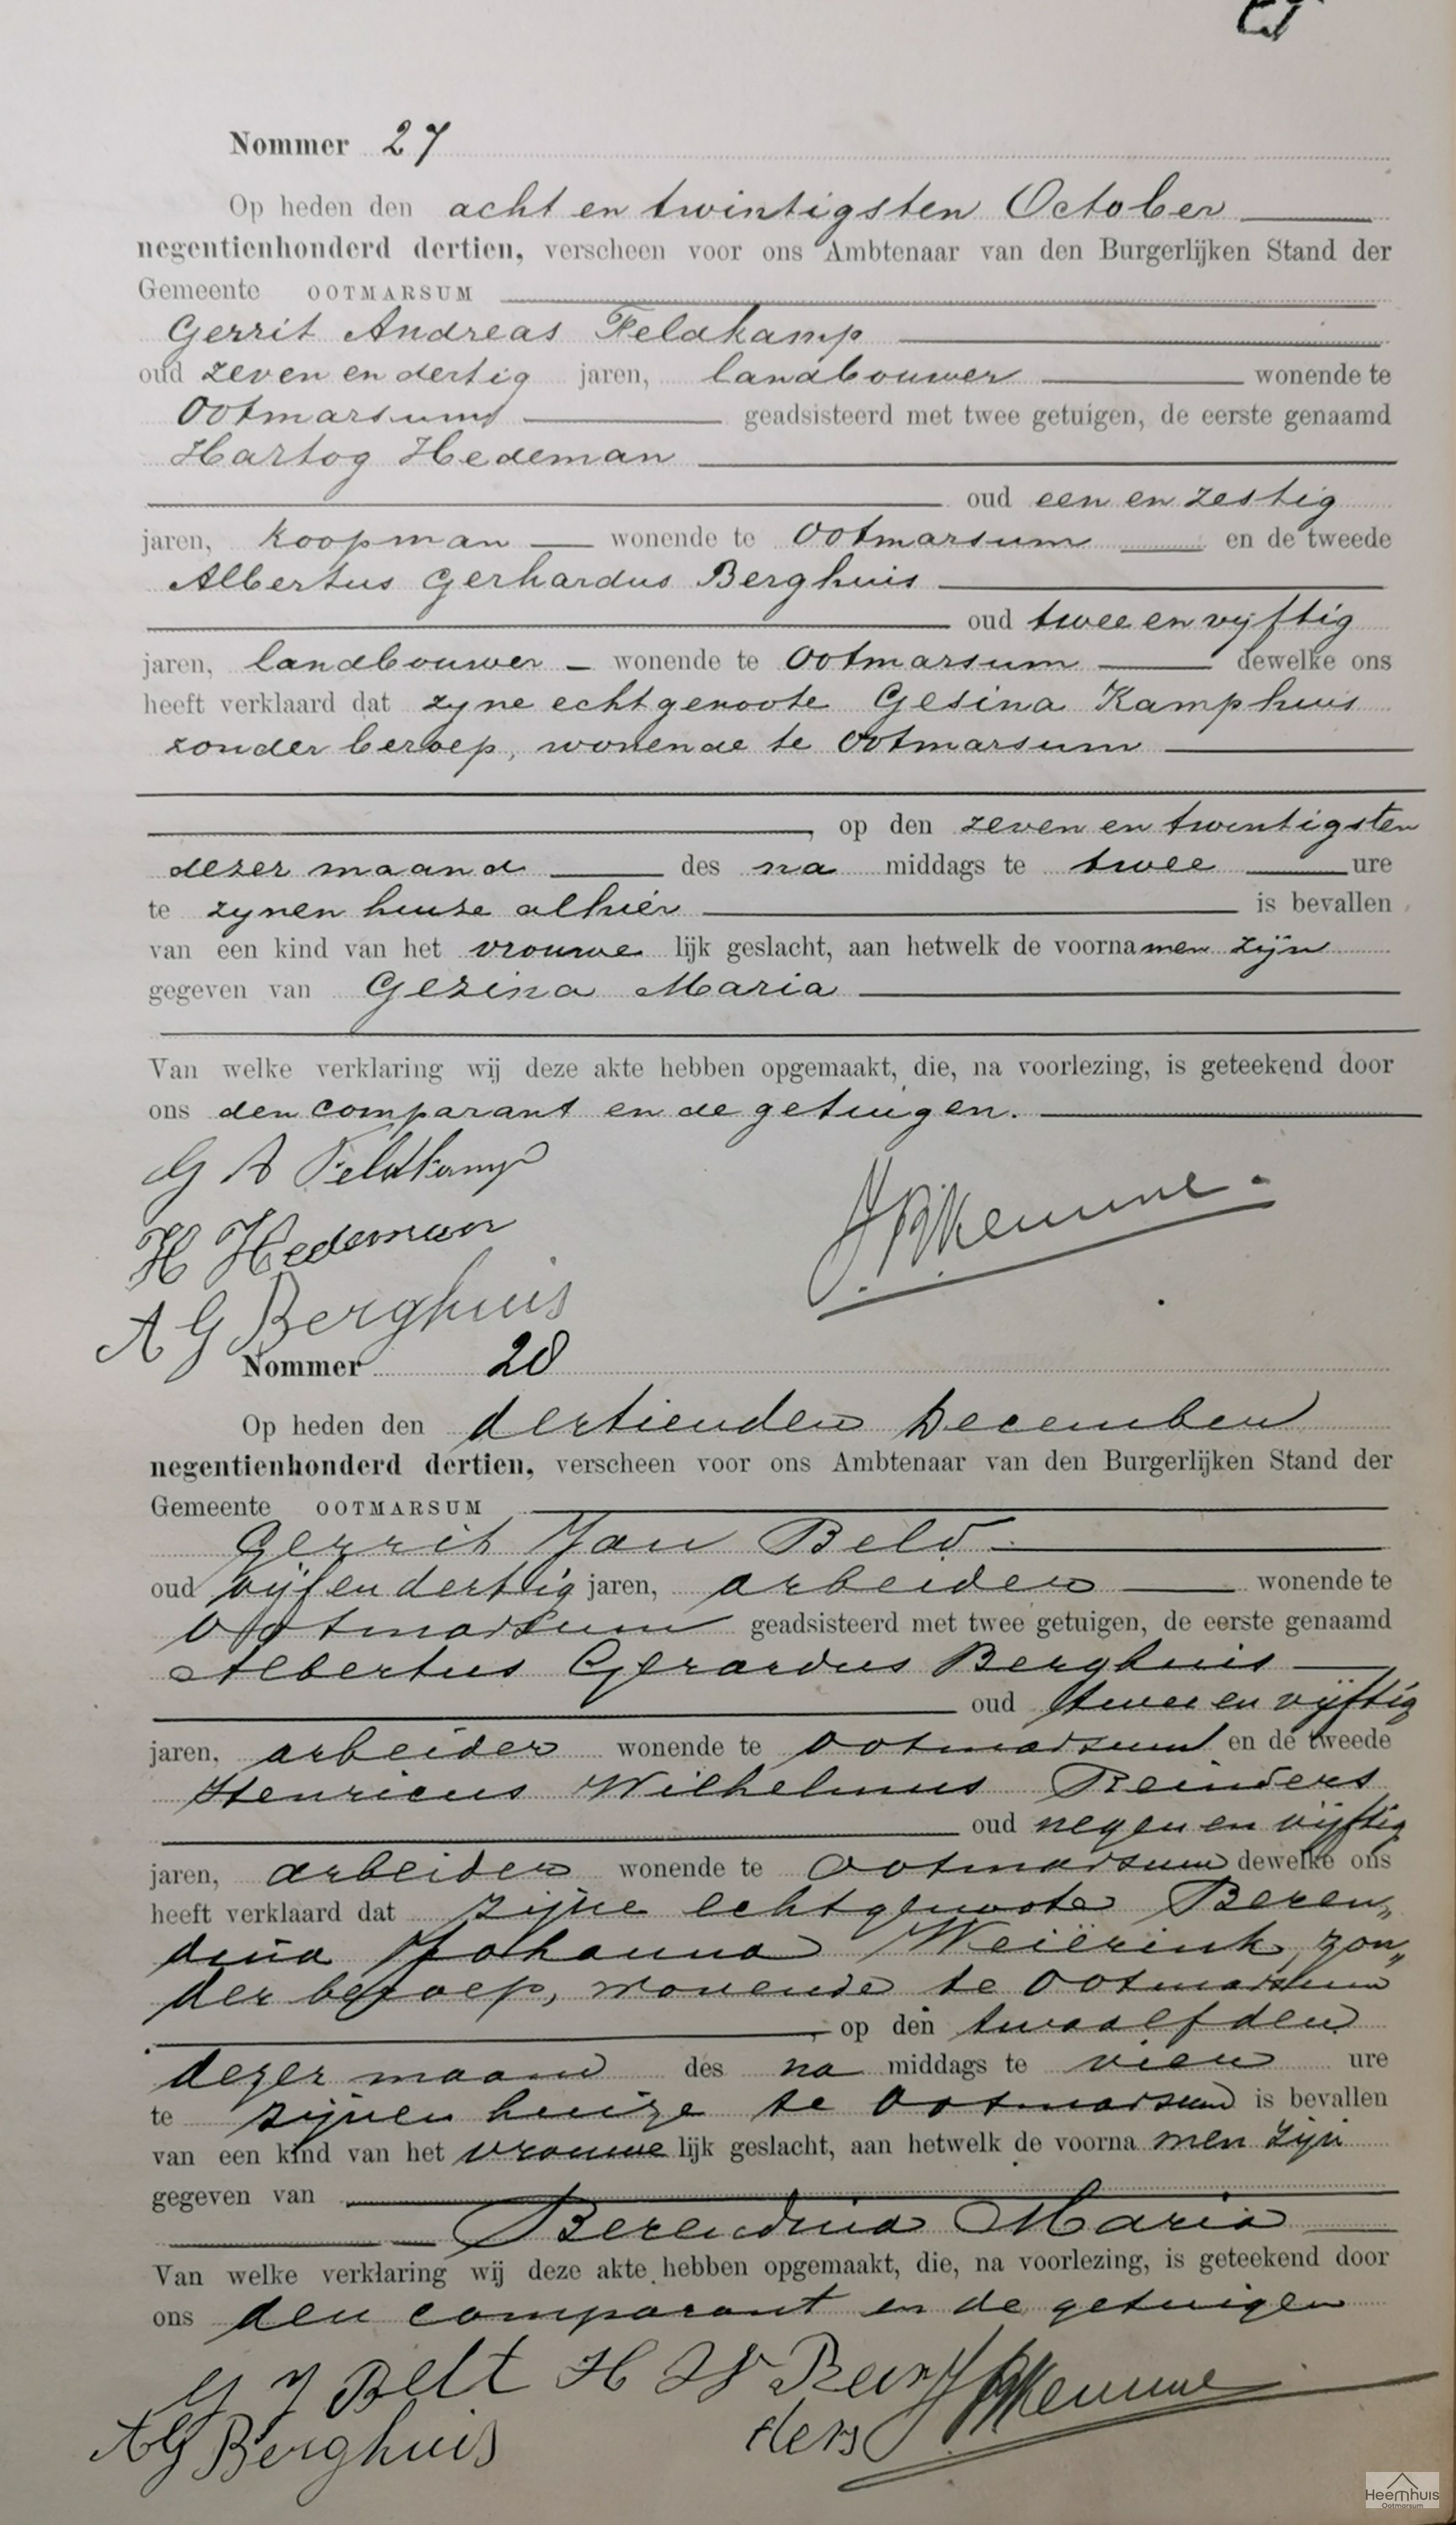 Nommer 27
Op heden den acht en twintigsten October
negentienhonderd dertien, verscheen voor ons Ambtenaar van den Burgerlijken Stand der
Gemeente OOTMARSUM
Gerrit Andreas Feldkamp
oud zeven en dertig jaren, landbouwer wonende te
Ootmarsum geadsisteerd met twee getuigen, de eerste genaamd
Hartog Hedeman
oud een en zestig
jaren, koopman wonende te Ootmarsum en de tweede
Albertus Gerhardus Berghuis
oud twee en vyftig
jaren, landbouwer wonende te Ootmarsum dewelke ons
heeft verklaard dat zyne echtgenoote Gesina Kamphuis
zonder beroep, wonende te Ootmarsum
, op den zeven en twintigsten
dezer maand des na middags te twee ure
te zynen huize alhier is bevallen
van een kind van het vrouwe lijk geslacht, aan hetwelk de voornamen zijn
gegeven van Gezina Maria
Van welke verklaring wij deze akte hebben opgemaakt, die, na voorlezing, is geteekend door
ons den comparant en de getuigen.
G A Feldkamp
H Hedeman
A G Berghuis
Nommer 28
Op heden den dertienden December
negentienhonderd dertien, verscheen voor ons Ambtenaar van den Burgerlijken Stand der
Gemeente OOTMARSUM
Gerrit Jan Beld
oud vijf en dertig jaren, arbeider wonende te
Ootmarsum geadsisteerd met twee getuigen, de eerste genaamd
Albertus Gerardus Berghuis
oud twee en vijftig
jaren, arbeider wonende te Ootmarsum en de tweede
Henricus Wilhelmus Reinders
oud negen en vijftig
jaren, arbeider wonende te Ootmarsum dewelke ons
heeft verklaard dat zijne echtgenoote Beren„
dina Johanna Weiërink, zon„
der beroep, wonende te Ootmarsum
, op den twaalfden
dezer maand des na middags te vier ure
te zijnen huize te Ootmarsum is bevallen
van een kind van het vrouwe lijk geslacht, aan hetwelk de voorna men zijn
gegeven van
Berendina Maria
Van welke verklaring wij deze akte hebben opgemaakt, die, na voorlezing, is geteekend door
ons den comparant en de getuigen
G J Belt H W Rein
ders
AG Berghuis
Heemhuis
Ootmarsum